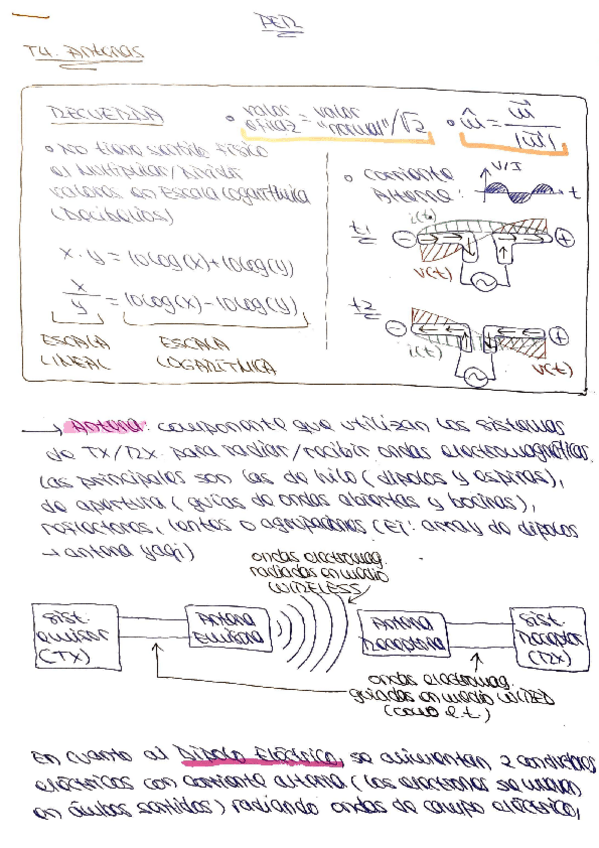 PER
T4. Antenas
RECUERDA
• valor eficaz = valor "normal"/√2
• û = u⃗ / |u⃗|
• No tiene sentido físico
el multiplicar/dividir
valores en escala logarítmica
(Decibelios)
x · y = 10log(x)+10log(y)
x/y = 10log(x)-10log(y)
ESCALA LINEAL
ESCALA LOGARÍTMICA
• corriente
Alterna:
V/I
t
t1
i(t)
- +
v(t)
t2
- +
i(t)
v(t)
→ Antena: componente que utilizan los sistemas
de TX/RX para radiar/recibir ondas electromagnéticas.
Las principales son las de hilo (dipolos y espiras),
de apertura (guías de ondas abiertas y bocinas),
reflectores, lentes o agrupaciones (Ej: array de dipolos
→ antena yagi)
ondas electromag.
radiadas en medio
WIRELESS
Sist.
emisor
(TX)
Antena
Emisora
Antena
Receptora
Sist.
Receptor
(RX)
ondas electromag.
guiadas en medio WIRED
(como l.t.)
En cuanto al Dipolo Eléctrico, se alimentan 2 conductores
eléctricos con corriente alterna (los electrones se mueven
en ambos sentidos) radiando ondas de campo eléctrico,